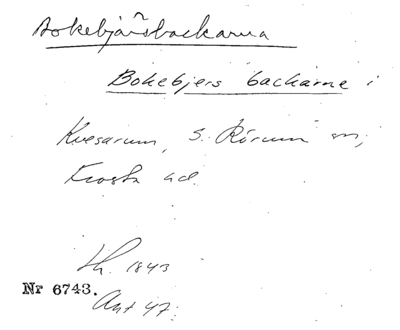 Bokebjärsbackarna
Bokebjers backarne i
Kvesarum, S. Rörum sn,
Frosta hd.
Lh. 1843
Nr 6743.
Ant 47.